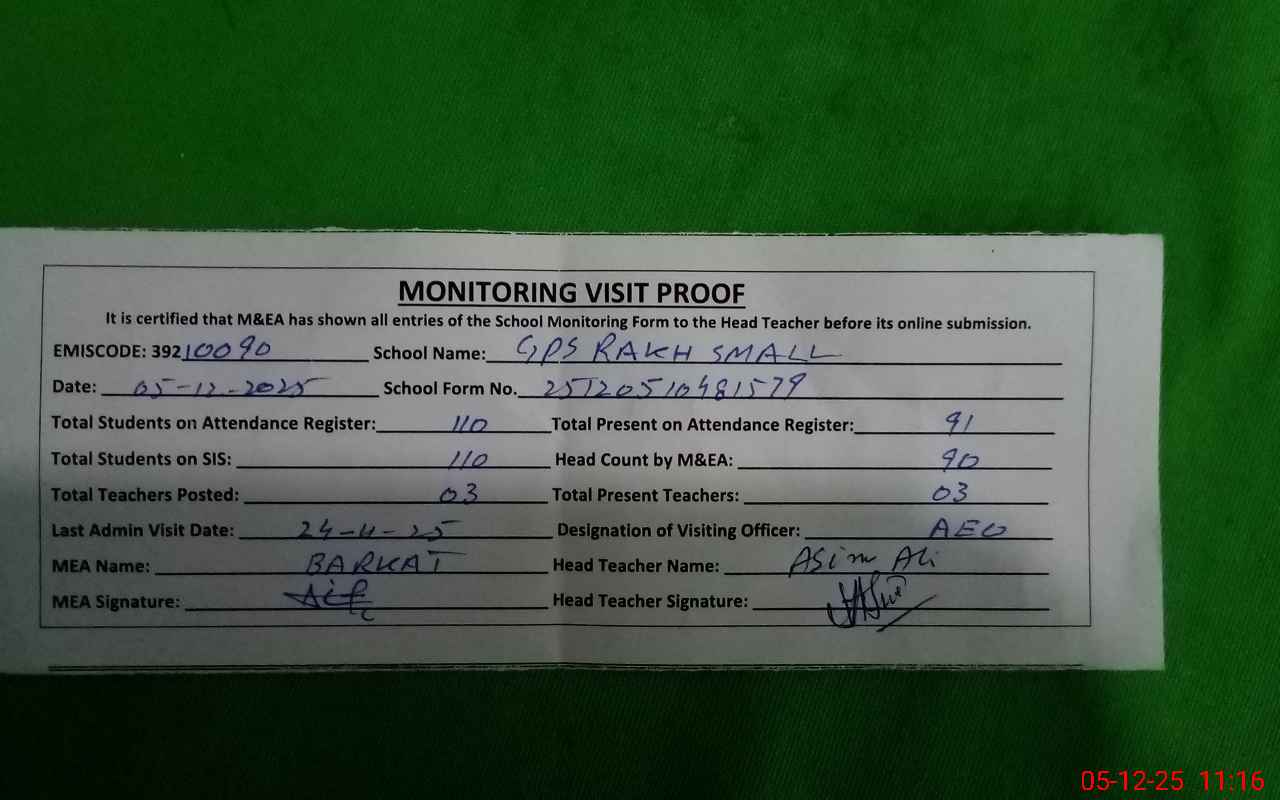 MONITORING VISIT PROOF
It is certified that M&EA has shown all entries of the School Monitoring Form to the Head Teacher before its online submission.
EMISCODE: 39210090 School Name: GPS RAKH SMALL
Date: 05-12-2025 School Form No. 25120510481579
Total Students on Attendance Register: 110 Total Present on Attendance Register: 91
Total Students on SIS: 110 Head Count by M&EA: 90
Total Teachers Posted: 03 Total Present Teachers: 03
Last Admin Visit Date: 24-4-25 Designation of Visiting Officer: AEO
MEA Name: BARKAT Head Teacher Name: ASim Ali
MEA Signature: Head Teacher Signature:
05-12-25 11:16